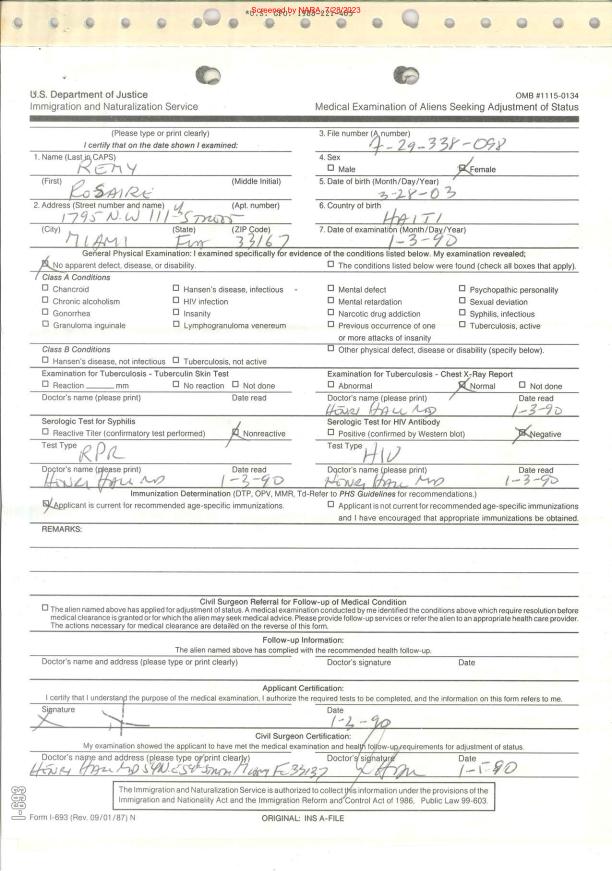 Screened by NARA, 7/28/2023
U.S. Department of Justice
Immigration and Naturalization Service
OMB #1115-0134
Medical Examination of Aliens Seeking Adjustment of Status
(Please type or print clearly)
I certify that on the date shown I examined:
3. File number (A number)
A-29-338-098
1. Name (Last in CAPS)
REMY
4. Sex
Male Female
(First) (Middle Initial)
ROSAIRE
5. Date of birth (Month/Day/Year)
3-28-03
2. Address (Street number and name) (Apt. number)
1795 N.W 111 Street
6. Country of birth
HAITI
(City) (State) (ZIP Code)
MIAMI Fla 33167
7. Date of examination (Month/Day/Year)
1-3-90
General Physical Examination: I examined specifically for evidence of the conditions listed below. My examination revealed;
No apparent defect, disease, or disability.
The conditions listed below were found (check all boxes that apply).
Class A Conditions
Chancroid Hansen's disease, infectious Mental defect Psychopathic personality
Chronic alcoholism HIV infection Mental retardation Sexual deviation
Gonorrhea Insanity Narcotic drug addiction Syphilis, infectious
Granuloma inguinale Lymphogranuloma venereum Previous occurrence of one Tuberculosis, active
or more attacks of insanity
Class B Conditions
Other physical defect, disease or disability (specify below).
Hansen's disease, not infectious Tuberculosis, not active
Examination for Tuberculosis - Tuberculin Skin Test
Reaction ______ mm No reaction Not done
Doctor's name (please print) Date read
Examination for Tuberculosis - Chest X-Ray Report
Abnormal Normal Not done
Doctor's name (please print) Date read
Henri Hall MD 1-3-90
Serologic Test for Syphilis
Reactive Titer (confirmatory test performed) Nonreactive
Test Type
RPR
Doctor's name (please print) Date read
Henri Hall MD 1-3-90
Serologic Test for HIV Antibody
Positive (confirmed by Western blot) Negative
Test Type
HIV
Doctor's name (please print) Date read
Henri Hall MD 1-3-90
Immunization Determination (DTP, OPV, MMR, Td-Refer to PHS Guidelines for recommendations.)
Applicant is current for recommended age-specific immunizations.
Applicant is not current for recommended age-specific immunizations
and I have encouraged that appropriate immunizations be obtained.
REMARKS:
Civil Surgeon Referral for Follow-up of Medical Condition
The alien named above has applied for adjustment of status. A medical examination conducted by me identified the conditions above which require resolution before
medical clearance is granted or for which the alien may seek medical advice. Please provide follow-up services or refer the alien to an appropriate health care provider.
The actions necessary for medical clearance are detailed on the reverse of this form.
Follow-up Information:
The alien named above has complied with the recommended health follow-up.
Doctor's name and address (please type or print clearly) Doctor's signature Date
Applicant Certification:
I certify that I understand the purpose of the medical examination, I authorize the required tests to be completed, and the information on this form refers to me.
Signature Date
X X 1-2-90
Civil Surgeon Certification:
My examination showed the applicant to have met the medical examination and health follow-up requirements for adjustment of status.
Doctor's name and address (please type or print clearly) Doctor's signature Date
Henri Hall MD 54th Street Miami 33137 1-5-90
The Immigration and Naturalization Service is authorized to collect this information under the provisions of the
Immigration and Nationality Act and the Immigration Reform and Control Act of 1986, Public Law 99-603.
I-693
Form I-693 (Rev. 09/01/87) N
ORIGINAL: INS A-FILE